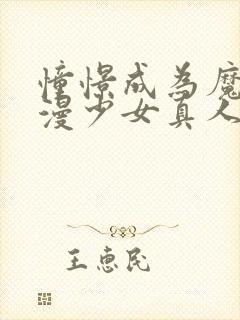 憧憬成为魔
漫少女真人
王惠民